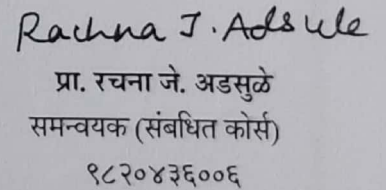 Rachna J. Adsule
प्रा. रचना जे. अडसुळे
समन्वयक (संबधित कोर्स)
९८२०४३६००६